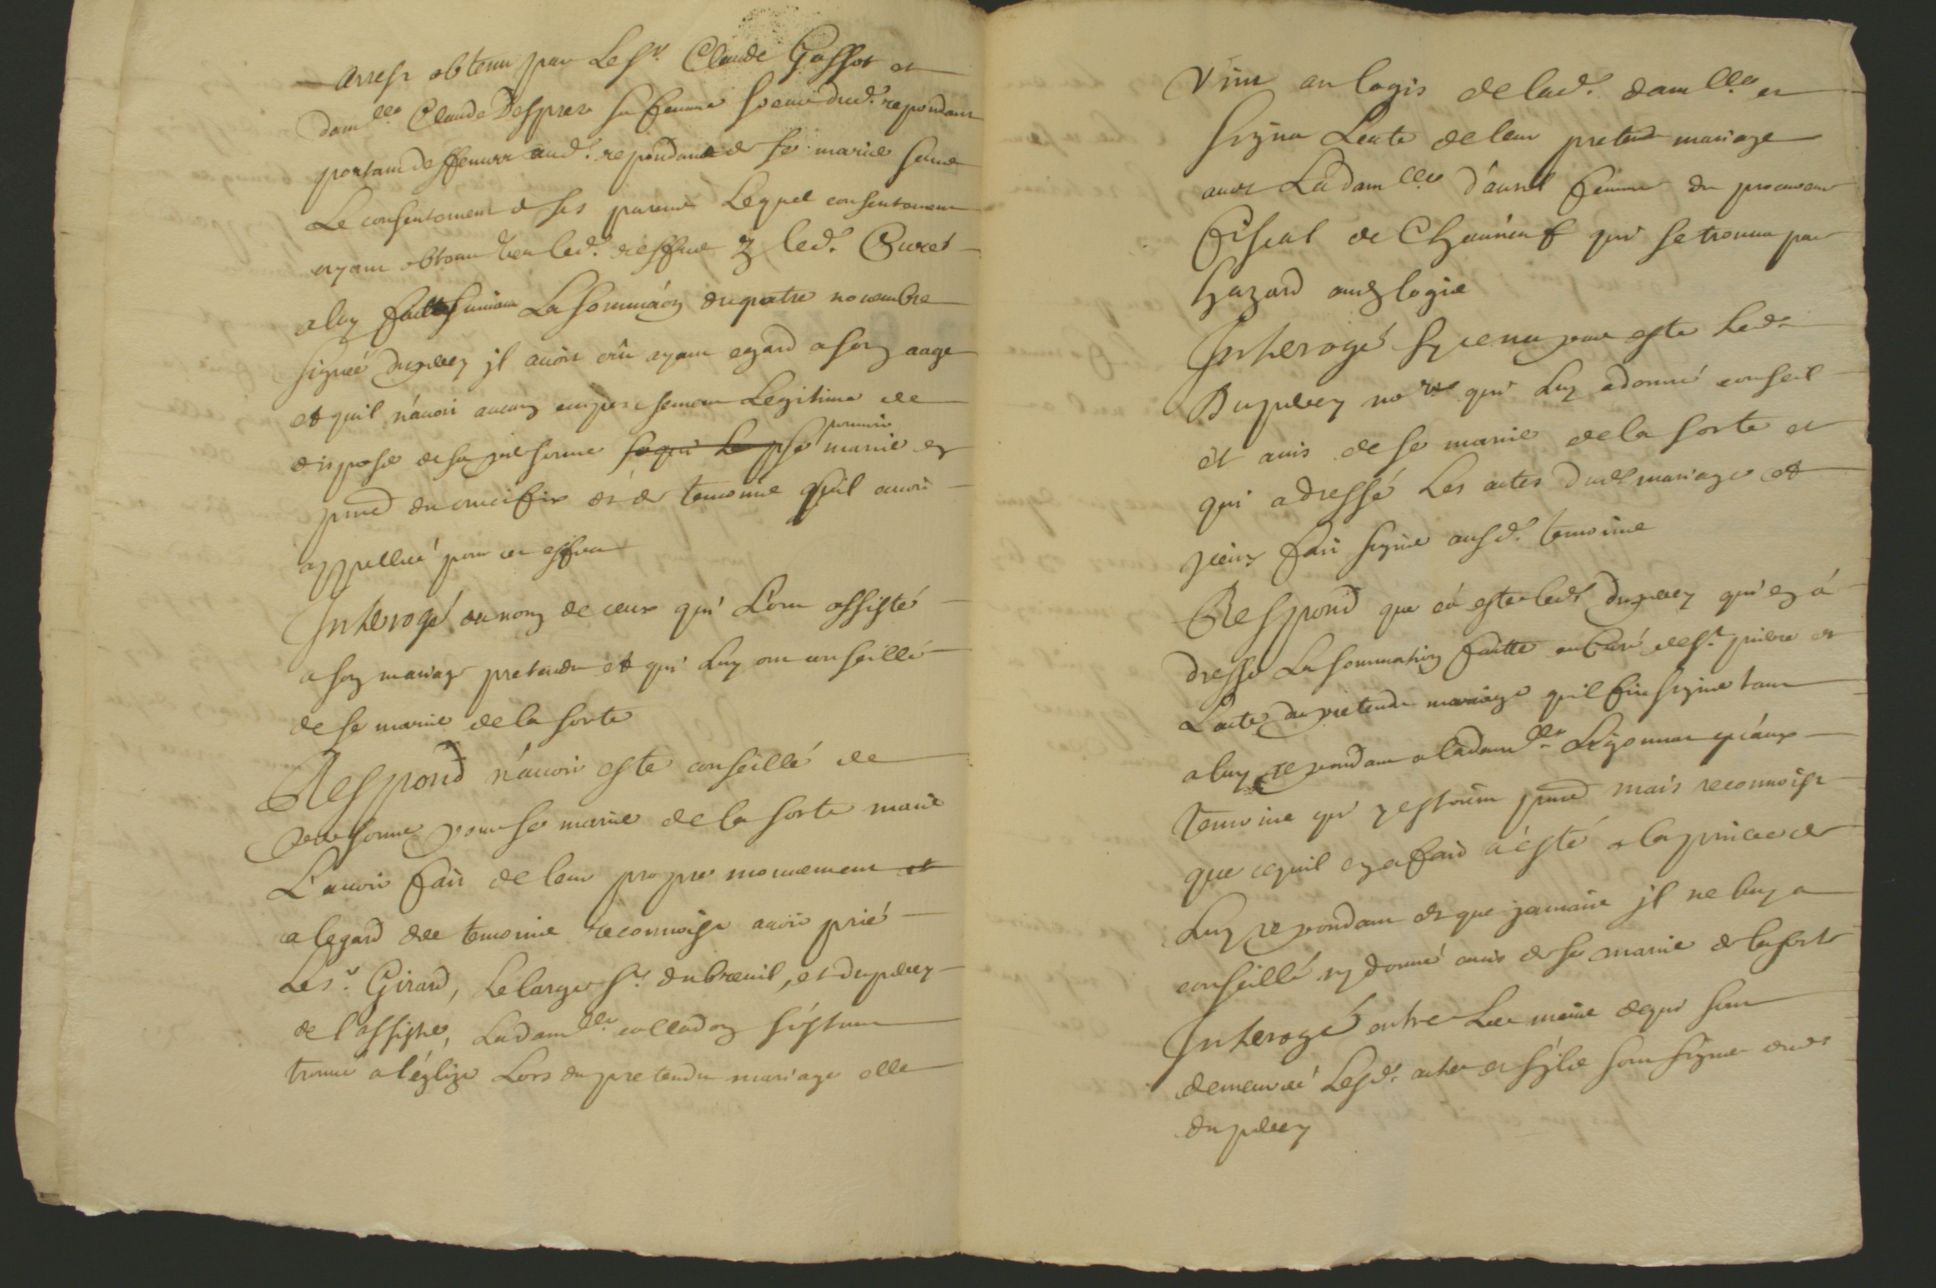 arrest obtenu par Le sr. Claude Gassot et
damlle. Claude Desprez sa femme soeur dud. repondant
portant deffences aud. repondant de se marier sans
Le consentement de ses parens Lequel consentement
ayant obtenu led. Curé
a luy faitte La sommãon du quatre novembre
signeé dupuy jl auoit crû ayant egard a son aage
et quil n'auoit aucun empeschement Legitime de
disposer de sa personne se pouuoir marier en
pnce du crucifix et de temoins quil auoit
appelleé pour cet effect
Interogé du nom de ceux qui L'ont assisté
a son mariage pretendu et qui Luy ont conseillé
de se marier de la sorte
Respond n'auoir esté conseillé de
personne pour se marier de la sorte mais
L'auoir fait de leur propre mouuement et
a legard des temoins reconnoist auoir prié
Les. Girard, Lelarge sr. dubreuil, et dupuy
de l'assister, La damlle. colladon s'estant
trouué a léglize Lors du pretendu mariage elle
Vint au logis de lad. damlle. et
signa L'acte de leur pretendu mariage
auec La damlle. d'auril femme du procureur
fiscal de Chauneuf qui se trouua par
hazard aud. logis
Interogé sy ce na pas esté Led.
Dupuy nore qui Luy a donné conseil
et auis de se marier de la sorte et
qui a dressé Les actes dud. mariage et
jceux fait signer ausd. temoins
Respond que ça esté led. dupuy qui en a
dressé La sommation faitte au Curé de St. pierre et
L'acte du pretendu mariage quil fit signer tant
a luy repondant a la damlle. quaux
temoins qui y estoient pnts mais reconnoist
que ce quil en a fait a esté a la priere de
Luy repondant et que jamais jl ne luy a
conseillé ny donné auis de se marier de la sorte
Interogé entre Les mains de qui sont
demeureé Lesd. actes et s'ils sont signés dud.
dupuy